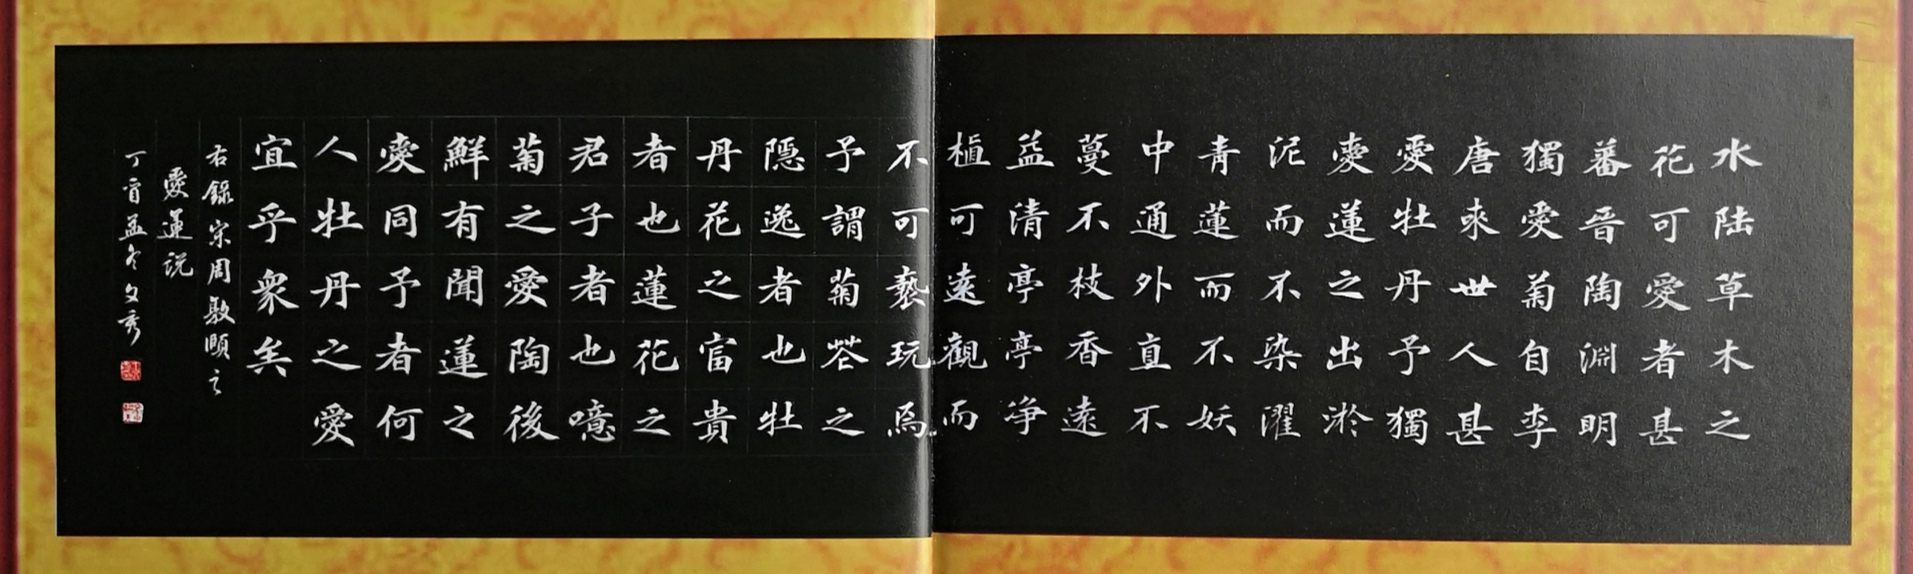 水陸草木之
花可愛者甚
蕃晉陶淵明
獨愛菊自李
唐來世人甚
愛牡丹予獨
愛蓮之出淤
泥而不染濯
青蓮而不妖
中通外直不
蔓不枝香遠
益清亭亭淨
植可遠觀而
不可褻玩焉
予謂菊花之
隱逸者也牡
丹花之富貴
者也蓮花之
君子者也噫
菊之愛陶後
鮮有聞蓮之
愛同予者何
人牡丹之愛
宜乎衆矣
右錄宋周敦頤之
愛蓮説
丁酉孟冬文秀